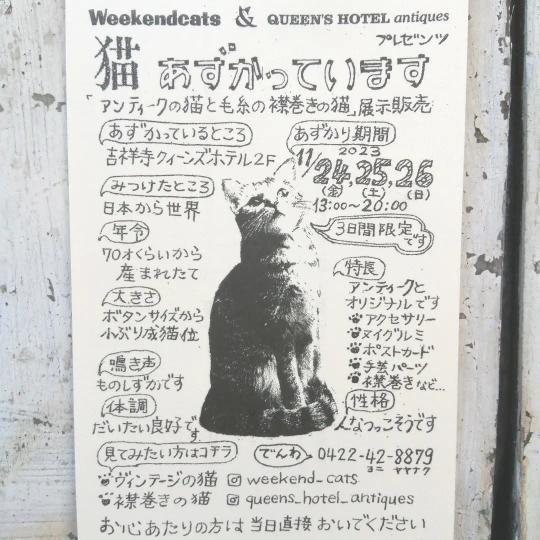 Weekendcats & QUEEN'S HOTEL antiques
プレゼンツ
猫 あずかっています
「アンティークの猫と毛糸の襟巻きの猫」展示販売
あずかっているところ
吉祥寺クィーンズホテル2F
みつけたところ
日本から世界
年令
70才くらいから
産まれたて
大きさ
ボタンサイズから
小ぶり成猫位
鳴き声
ものしずかです
体調
だいたい良好です
あずかり期間
2023
11/24,25,26
(金) (土) (日)
13:00〜20:00
3日間限定です
特長
アンティークと
オリジナルです
アクセサリー
ヌイグルミ
ポストカード
手芸パーツ
襟巻きなど…
性格
人なつっこそうです
見てみたい方はコチラ
でんわ 0422-42-8879
ヨニ ヤヤナク
ヴィンテージの猫 weekend_cats
襟巻きの猫 queens_hotel_antiques
お心あたりの方は当日直接おいでください